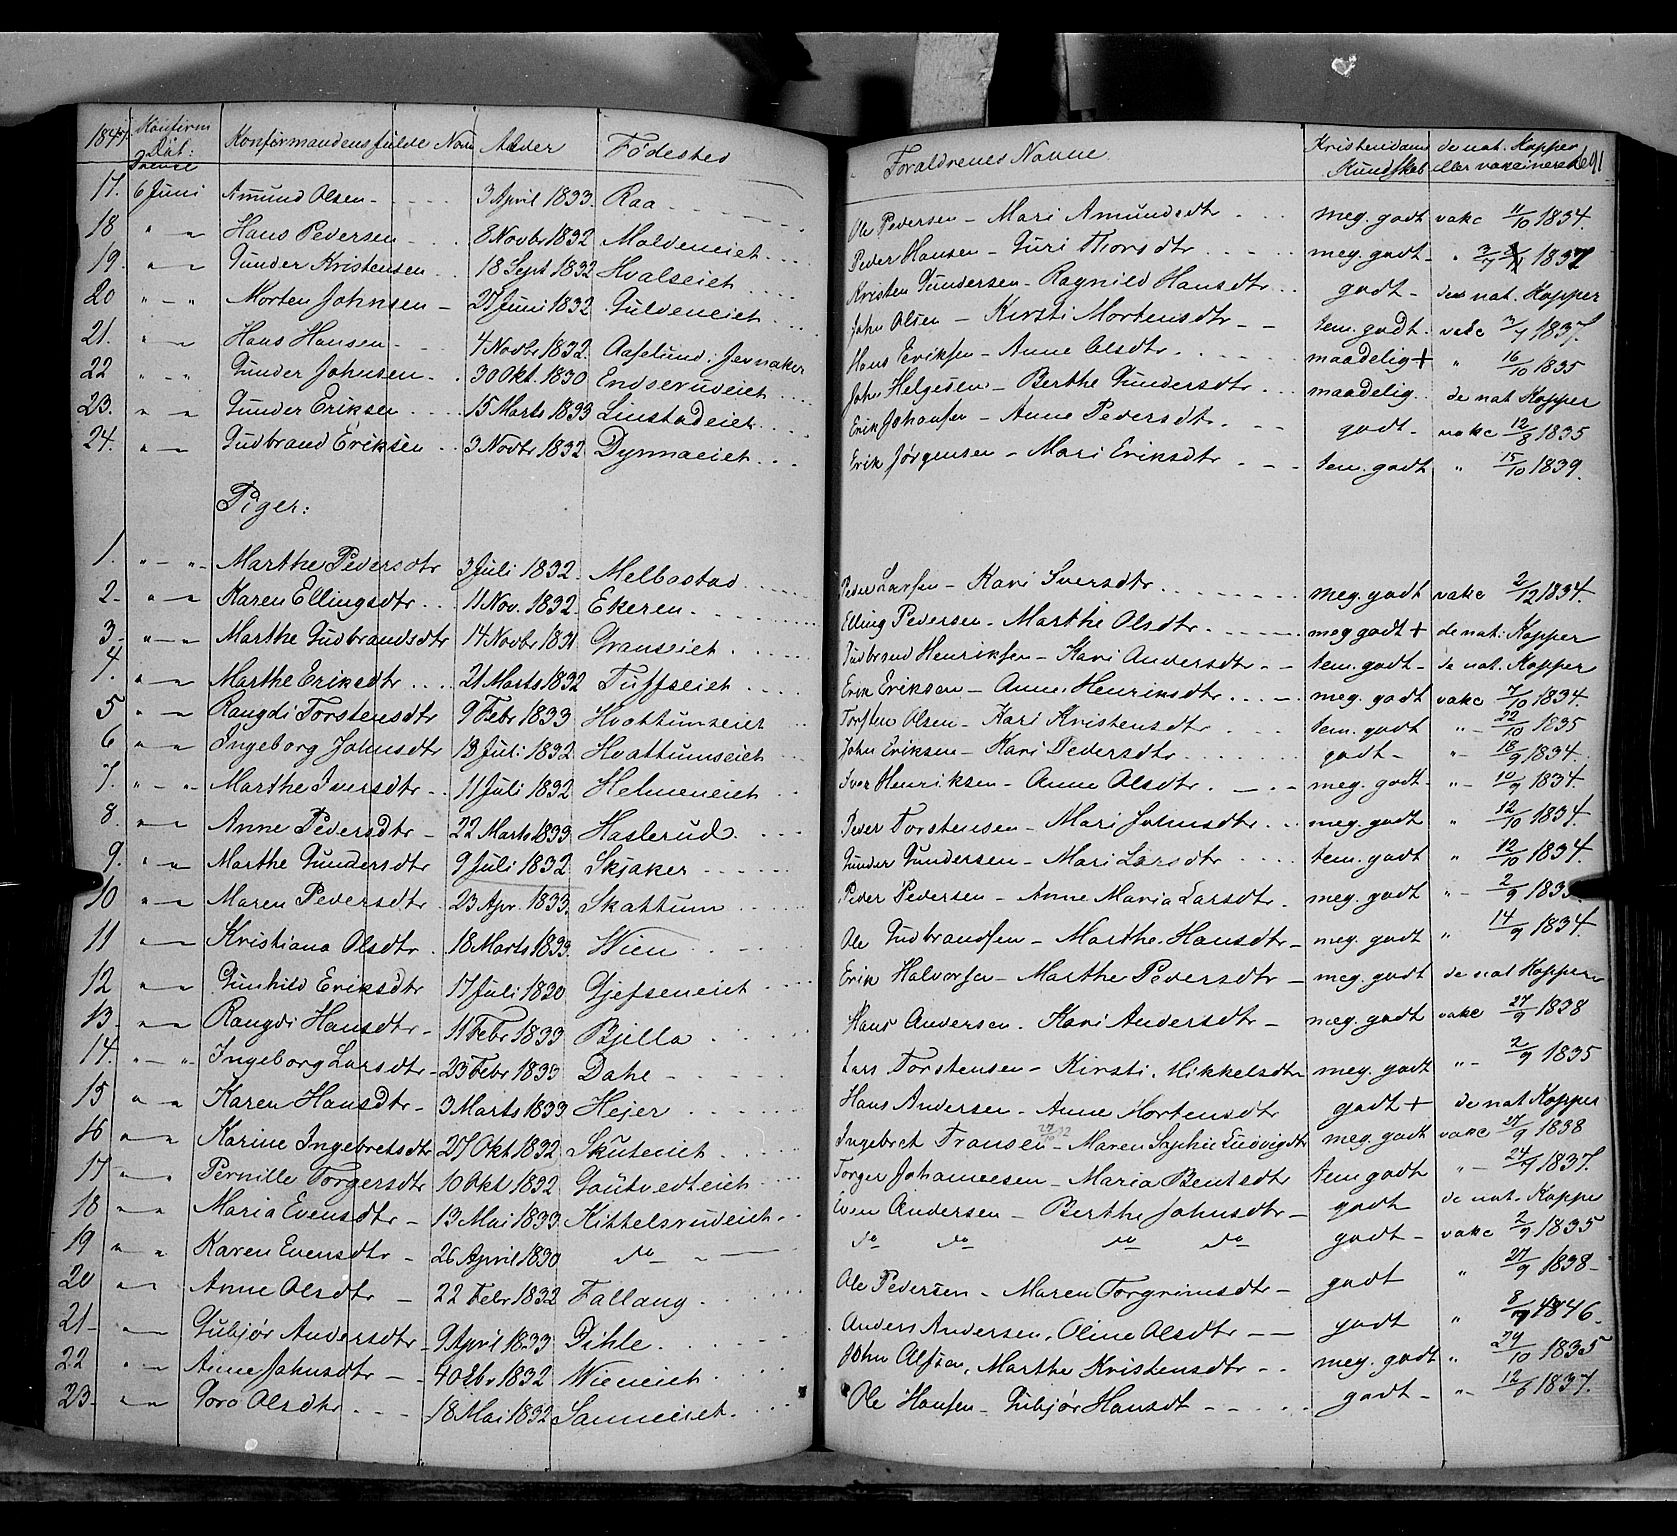 1847. Konfirm Dat: Konfirmandens fulde Navn Alder Födested Forældrenes Navne Kristendoms Kundskab de nat. Kopper eller vakcinerede 91
17. 6 Juni Amund Olsen 3 April 1833. Raa Ole Pedersen - Mari Amundsdtr meg. godt vakc 11/10 1834.
18 " " Hans Pedersen 8 Novbr 1832 Moldeneiet Peder Hansen - Guri Thorsdtr meg. godt " 3/7 1837
19. " " Gunder Kristensen 18 Sept 1832 Hvalseiet Kristen Gundersen - Ragnild Hansdtr godt - de nat. Kopper
20 " " Morten Johnsen - 27 Juni 1832 Guldeneiet John Olsen - Kirsti Mortensdtr tem. godt. vakc 3/7 1837.
21. " " Hans Hansen 4 Novbr 1832. Aaslund i Jevnaker Hans Eriksen - Anne Olsdtr maadelig + " 16/10 1835
22 " " Gunder Johnsen 30 Okt. 1830 Endserudeiet John Helgesen - Berthe Gundersdtr maadelig. de nat Kopper
23. " " Gunder Eriksen 15 Marts 1833 Linstadeiet Erik Johansen - Anne Pedersdtr godt - vakc 12/8 1835
24. " " Gudbrand Eriksen 3 Novbr 1832 Dynnaeiet Erik Jørgensen - Mari Eriksdtr tem. godt " 15/10 1839.
Piger:
1. " " Marthe Pedersdtr 3 Juli 1832. Melbostad Peder Larsen - Kari Iversdtr meg. godt vakc 2/12 1834.
2. " " Karen Ellingsdtr 11 Nov. 1832 Ekeren Elling Pedersen - Marthe Olsdtr meg godt + de nat: Kopper
3. " " Marthe Gudbrandsdtr 14 Novbr 1831 Granseiet Gudbrand Henriksen - Kari Andersdtr tem. godt - de nat. Kopper
4. " " Marthe Eriksdtr 21 Marts 1832 Tuffseiet Erik Eriksen - Anne Henriksdtr meg. godt vakc 7/10 1834.
5 " " Rangdi Torstensdtr 9 Febr 1833 Hvattumseiet Torsten Olsen - Kari Kristensdtr tem. godt " 22/10 1835
6 " " Ingeborg Johnsdtr 13 Juli 1832 Hvattumseiet John Eriksen - Kari Pedersdtr godt - " 18/9 1834.
7. " " Marthe Iversdtr 11 Juli 1832 Helmeneiet Iver Henriksen - Anne Olsdtr meg. godt " 10/9 1834.
8. " " Anne Pedersdtr - 22 Marts 1833 Haslerud Peder Torstensen - Mari Johnsdtr meg. godt " 12/10 1834.
9. " " Marthe Gundersdtr 9 Juli 1832 Skjaker Gunder Gundersen - Mari Larsdtr tem. godt " 12/10 1834.
10 " " Maren Pedersdtr 23 Apr. 1833. Skattum Peder Pedersen - Anne Maria Larsdtr meg. godt " 2/9 1835
11 " " Kristiana Olsdtr 18 Marts 1833 Wien Ole Gudbrandsen - Marthe Hansdtr - meg. godt " 14/9 1834.
12 " " Gunhild Eriksdtr 17 Juli 1830 Gjefseneiet Erik Halvorsen - Marthe Pedersdtr - meg. godt de nat Kopper
13. " " Rangdi Hansdtr - 11 Febr 1833 Bjella Hans Andersen. Kari Andersdtr - meg. godt vakc 27/9 1838
14. " " Ingeborg Larsdtr 23 Febr 1833 Dahe Lars Torstensen - Kirsti Mikkelsdtr meg. godt " 2/9 1835
15 " " Karen Hansdtr - 3 Marts 1833 Hejer Hans Andersen - Anne Mortensdtr godt + de nat Kopper
16 " " Karine Ingebretsdtr 27 Okt 1832 Skuteneiet Ingebret Fransen - Maren Sophie Ludvigsdtr meg. godt vakc 27/9 1838
17 " " Pernille Torgersdtr 10 Okt 1832 Gautvedteiet Torger Johannesen - Maria Bentsdtr tem godt " 24/7 1837.
18 " " Maria Evensdtr - 13 Mai 1833. Kittelsrudeiet Even Andersen - Berthe Johnsdtr - godt de nat. Kopper
19 " " Karen Evensdtr - 26 April 1830 do do do do do godt - vakc 2/9 1835
20 " " Anne Olsdtr - 22 Febr 1832 Fallang Ole Pedersen - Maren Torgrimsdtr - godt " 27/9 1838
21 " " Gubjør Andersdtr 9 April 1833 Dihle Anders Andersen, Oline Olsdtr godt " 8/7 1846.
22 " " Anne Johnsdtr 4 Oktbr 1832 Wieneiet John Olsen, Marthe Kristensdtr meg. godt " 29/10 1835
23. " " Goro Olsdtr 18 Mai 1832 Sanneeiet Ole Hansen - Gubjør Hansdt godt - " 12/6 1837.